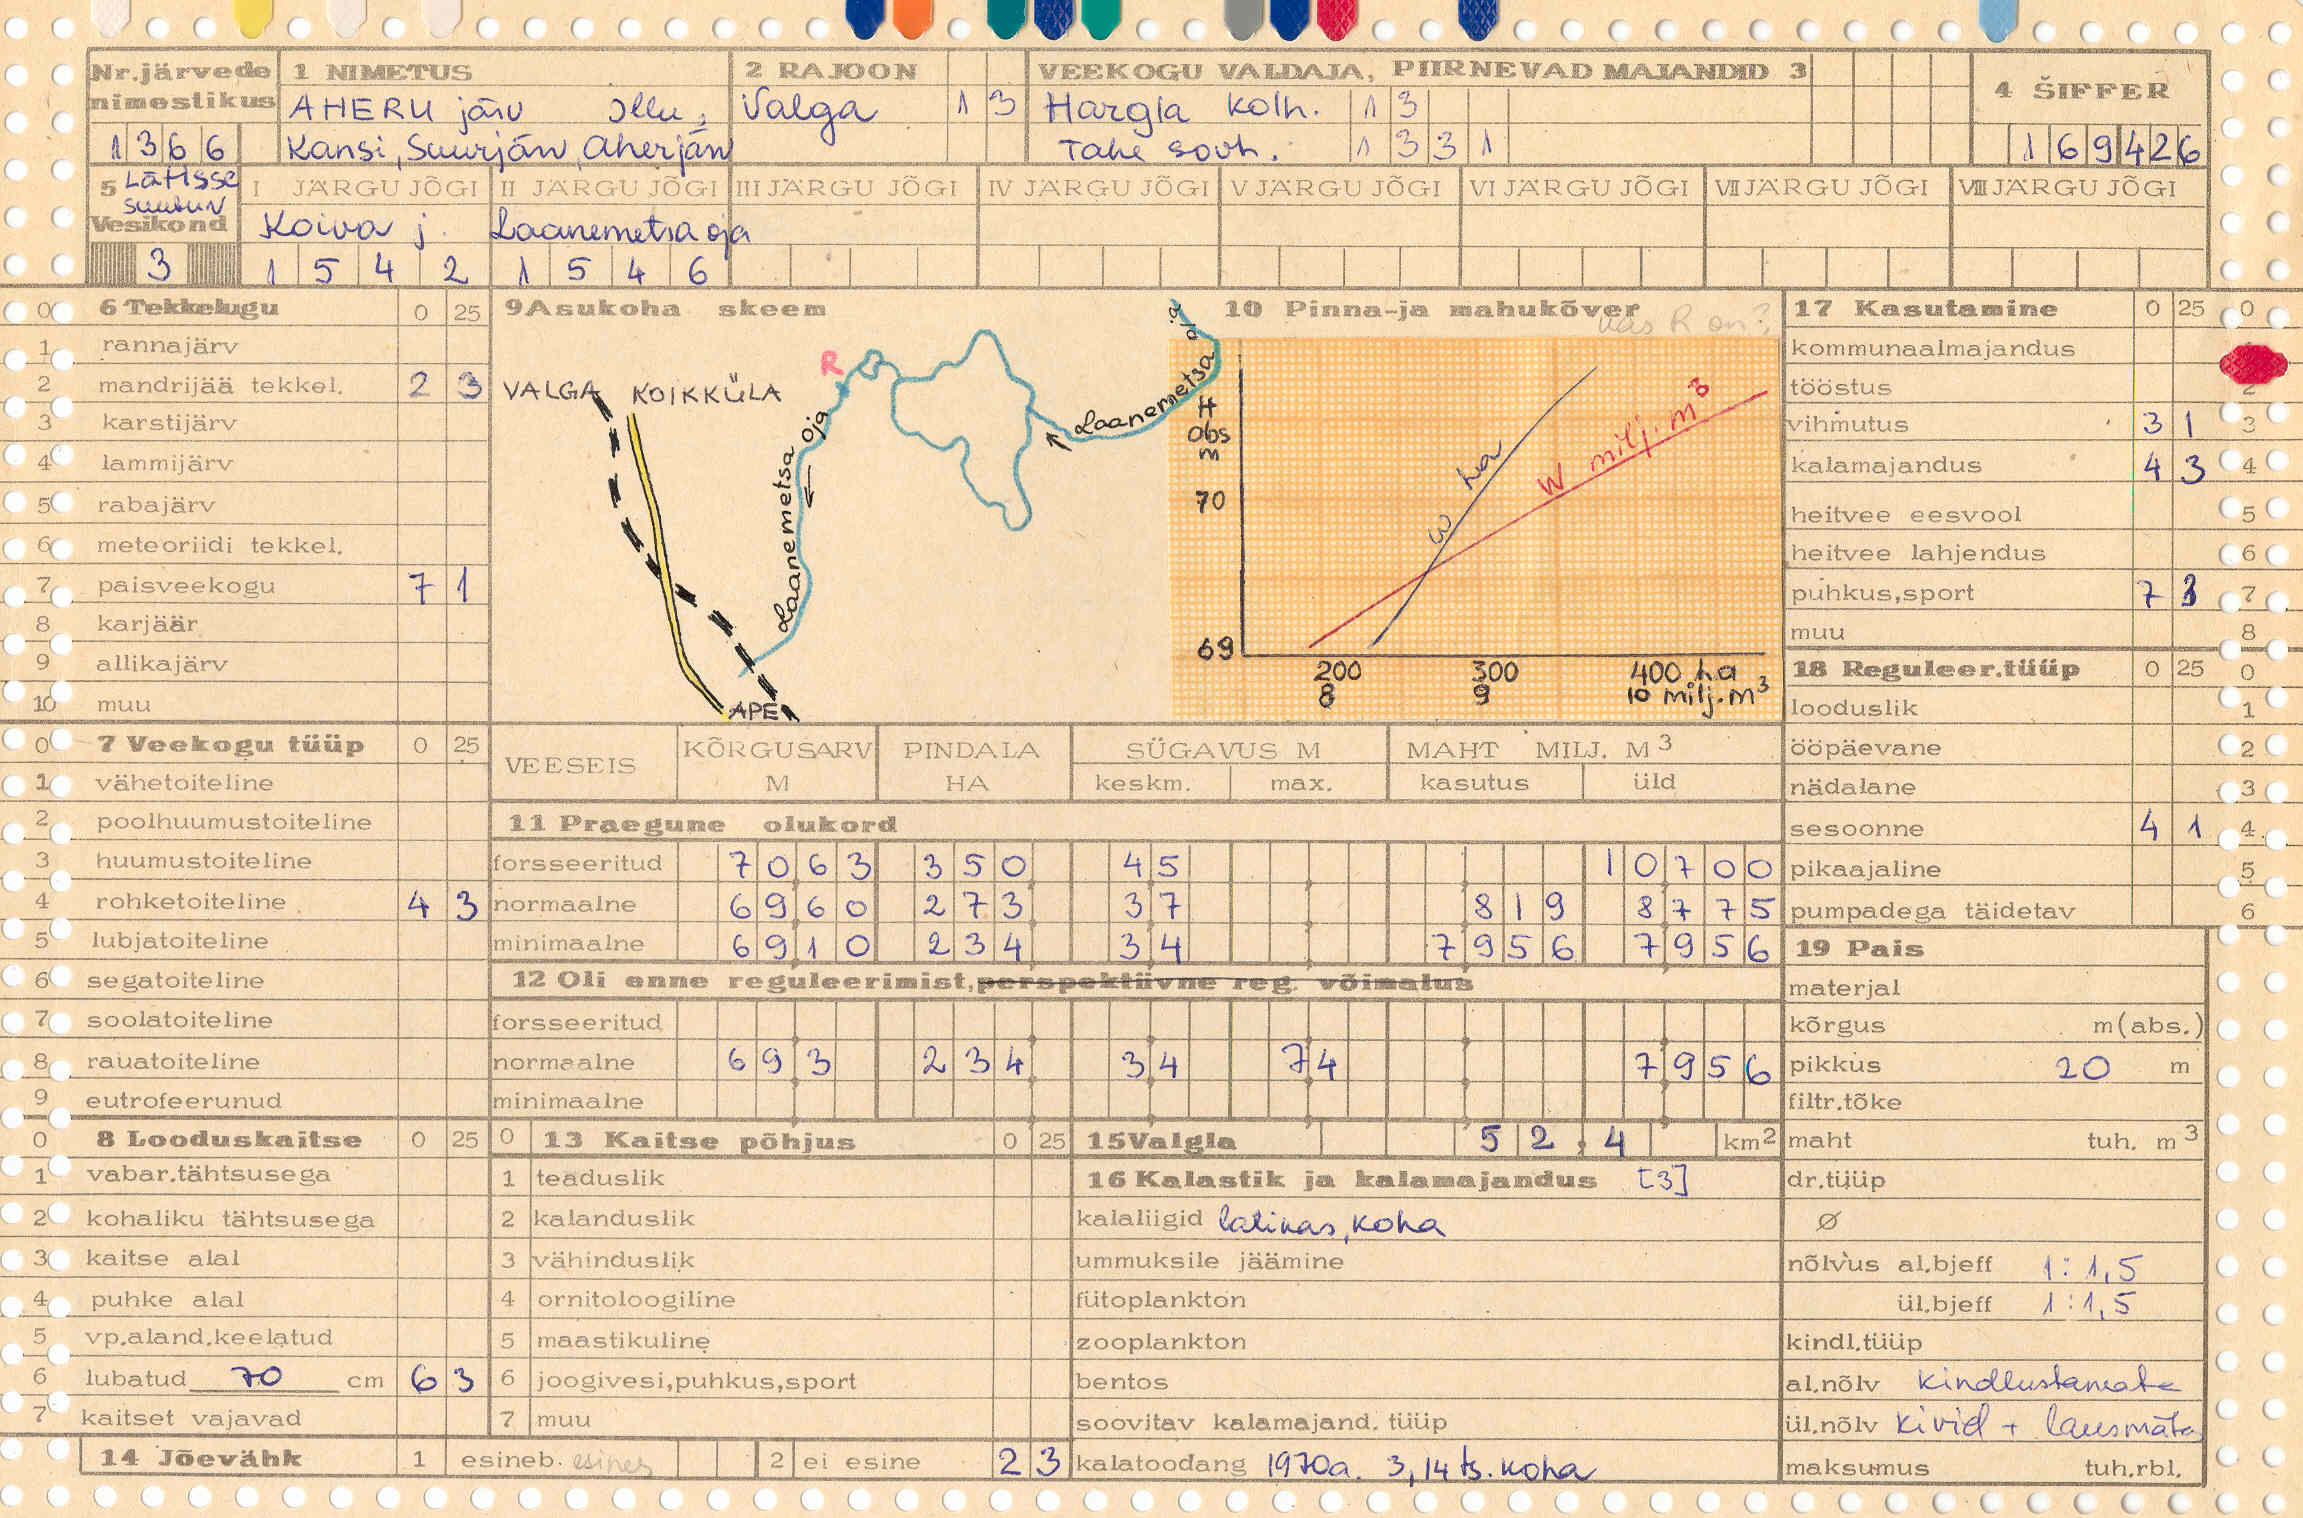 Nr.järvede nimestikus 1 NIMETUS 2 RAJOON VEEKOGU VALDAJA, PIIRNEVAD MAJANDID 3 4 ŠIFFER
AHERU järv Illu, Valga 13 Hargla kolh. 13
1366 Kansi, Suurjärv, Aherjärv Tahe sovh. 1331 169426
5 Lätisse suubuv Vesikond I JÄRGU JÕGI II JÄRGU JÕGI III JÄRGU JÕGI IV JÄRGU JÕGI V JÄRGU JÕGI VI JÄRGU JÕGI VII JÄRGU JÕGI VIII JÄRGU JÕGI
Koiva j. Laanemetsa oja
3 1542 1546
0 6 Tekkelugu 0 25
1 rannajärv
2 mandrijää tekkel. 2 3
3 karstijärv
4 lammijärv
5 rabajärv
6 meteoriidi tekkel.
7 paisveekogu 7 1
8 karjäär
9 allikajärv
10 muu
9 Asukoha skeem
VALGA KOIKKÜLA
R
Laanemetsa oja
Laanemetsa oja
APE
10 Pinna-ja mahukõver
kas R on?
H
Obs
m
70
69
w ha
W milj. m3
200 300 400 ha
8 9 10 milj.m3
17 Kasutamine 0 25 0
kommunaalmajandus
tööstus 2
vihmutus 3 1 3
kalamajandus 4 3 4
heitvee eesvool 5
heitvee lahjendus 6
puhkus,sport 7 3 7
muu 8
18 Reguleer.tüüp 0 25 0
looduslik 1
ööpäevane 2
nädalane 3
sesoonne 4 1 4
pikaajaline 5
pumpadega täidetav 6
0 7 Veekogu tüüp 0 25
1 vähetoiteline
2 poolhuumustoiteline
3 huumustoiteline
4 rohketoiteline 4 3
5 lubjatoiteline
6 segatoiteline
7 soolatoiteline
8 rauatoiteline
9 eutrofeerunud
VEESEIS KÕRGUSARV M PINDALA HA SÜGAVUS M MAHT MILJ. M3
keskm. max. kasutus üld
11 Praegune olukord
forsseeritud 7063 350 45 10700
normaalne 6960 273 37 819 8775
minimaalne 6910 234 34 7956 7956
12 Oli enne reguleerimist, perspektiivne reg. võimalus
forsseeritud
normaalne 693 234 34 74 7956
minimaalne
19 Pais
materjal
kõrgus m(abs.)
pikkus 20 m
filtr.tõke
maht tuh. m3
dr.tüüp
Ø
nõlvus al.bjeff 1:1,5
ül.bjeff 1:1,5
kindl.tüüp
al.nõlv kindlustamata
ül.nõlv kivid +
maksumus tuh.rbl.
0 8 Looduskaitse 0 25
1 vabar.tähtsusega
2 kohaliku tähtsusega
3 kaitse alal
4 puhke alal
5 vp.aland.keelatud
6 lubatud 70 cm 6 3
7 kaitset vajavad
0 13 Kaitse põhjus 0 25
1 teaduslik
2 kalanduslik
3 vähinduslik
4 ornitoloogiline
5 maastikuline
6 joogivesi,puhkus,sport
7 muu
14 Jõevähk 1 esineb. esines 2 ei esine 2 3
15 Valgla 52,4 km2
16 Kalastik ja kalamajandus [3]
kalaliigid latikas, koha
ummuksile jäämine
fütoplankton
zooplankton
bentos
soovitav kalamajand. tüüp
kalatoodang 1970a. 3,14 ts. koha